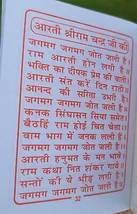 आरती श्रीराम चन्द्र जी की
जगमग जगमग जोत जली है।
राम आरती होन लगी है॥
भक्ति का दीपक प्रेम की बाती।
आरती संत करें दिन राती॥
आनन्द की सरिता उभरी है।
जगमग जगमग जोत जली है॥
कनक सिंघासन सिया समेता।
बैठहिं राम होई चित चेता॥
वाम भाग में जनक लली है।
जगमग जगमग जोत जली है॥
आरती हनुमत के मन भावे।
राम कथा नित शंकर गावे॥
सन्तों की ये भीड़ लगी है।
जगमग जगमग जोत जली है॥
32